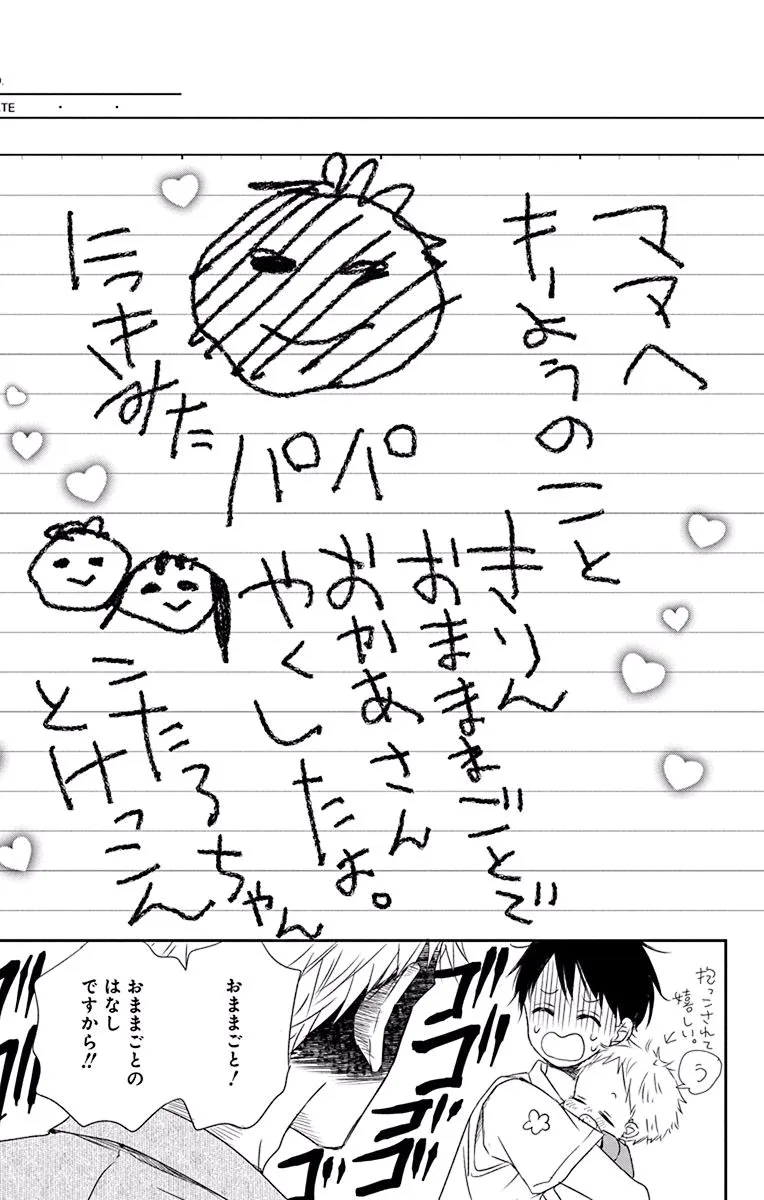 ATE
ママへ
きょうのこと
きりん
おままごとで
おかあさん
やくしたよ。
パパ
にっきみた
こたろちゃん
とけっこん
抱っこされて
嬉しい。
う
おままごと！
おままごとの
はなし
ですから！！
ゴゴゴ
ゴゴ
ゴゴ